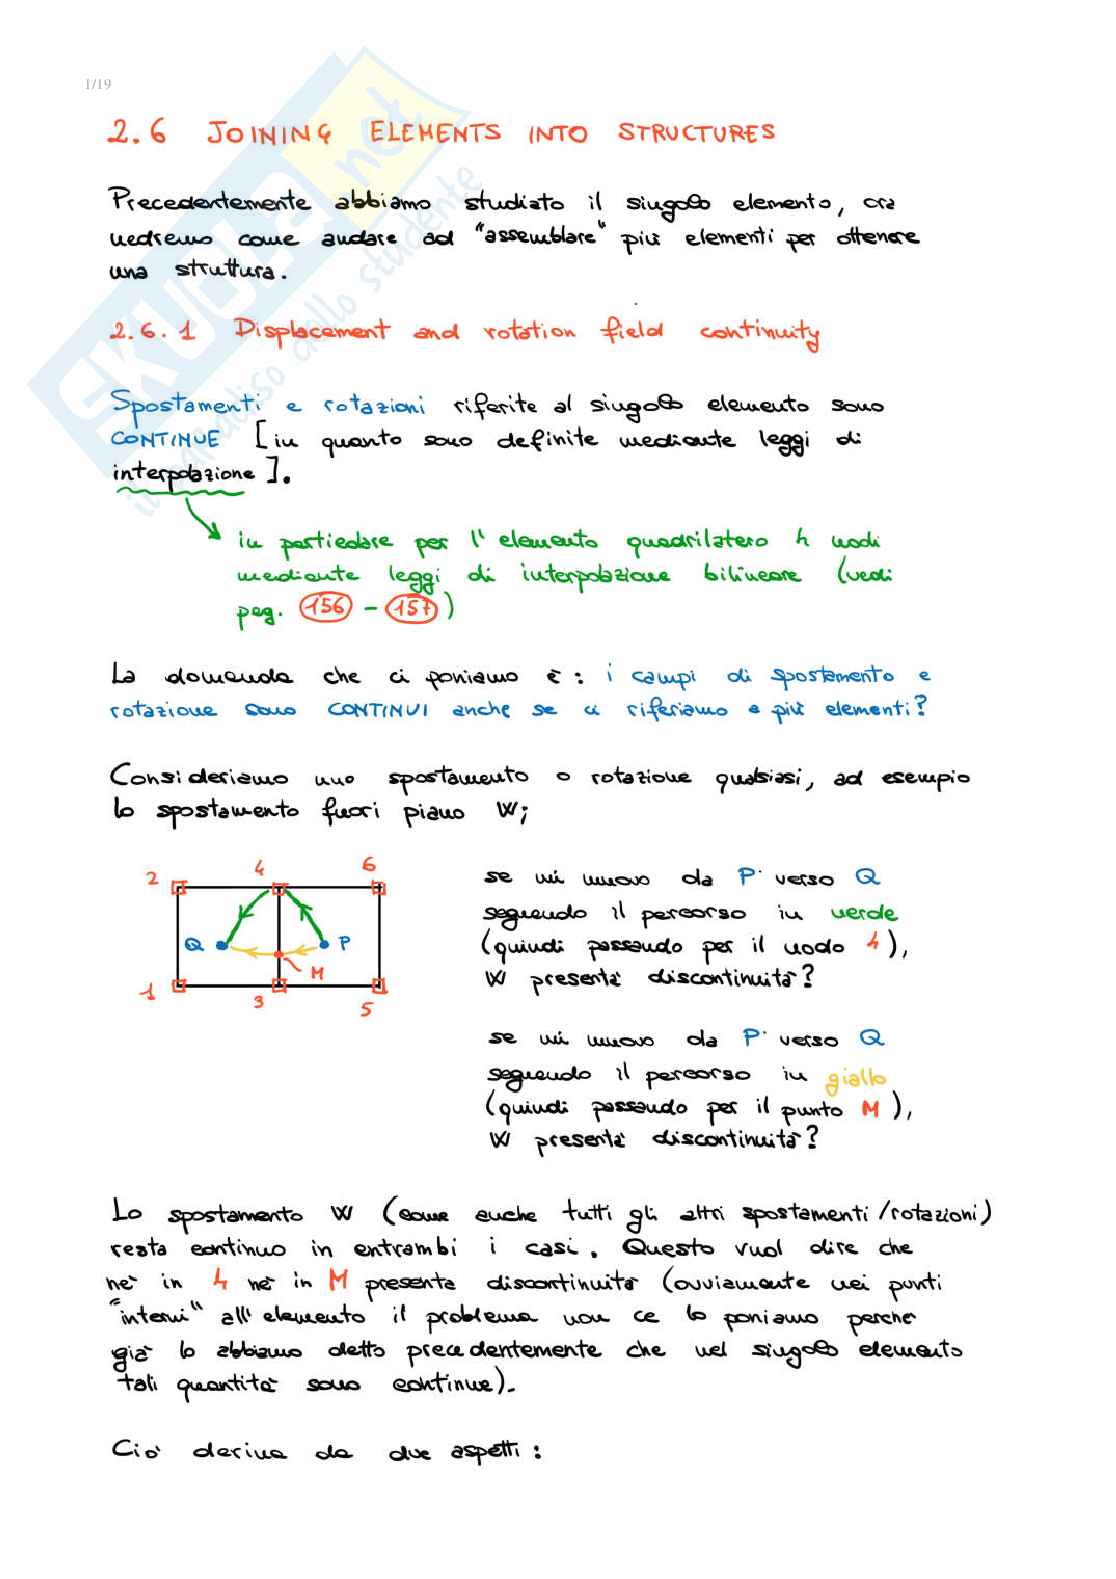 1/19
2.6 JOINING ELEMENTS INTO STRUCTURES
Precedentemente abbiamo studiato il singolo elemento, ora
vedremo come andare ad "assemblare" più elementi per ottenere
una struttura.
2.6.1 Displacement and rotation field continuity
Spostamenti e rotazioni riferite al singolo elemento sono
CONTINUE [in quanto sono definite mediante leggi di
interpolazione].
in particolare per l'elemento quadrilatero 4 nodi
mediante leggi di interpolazione bilineare (vedi
pag. 156 - 157)
La domanda che ci poniamo è: i campi di spostamento e
rotazione sono CONTINUI anche se ci riferiamo a più elementi?
Consideriamo uno spostamento o rotazione qualsiasi, ad esempio
lo spostamento fuori piano W;
2 4 6
Q P
M
1 3 5
se mi muovo da P verso Q
seguendo il percorso in verde
(quindi passando per il nodo 4),
W presenta discontinuità?
se mi muovo da P verso Q
seguendo il percorso in giallo
(quindi passando per il punto M),
W presenta discontinuità?
Lo spostamento W (come anche tutti gli altri spostamenti/rotazioni)
resta continuo in entrambi i casi. Questo vuol dire che
nè in 4 nè in M presenta discontinuità (ovviamente nei punti
"interni" all'elemento il problema non ce lo poniamo perchè
già lo abbiamo detto precedentemente che nel singolo elemento
tali quantità sono continue).
Ciò deriva da due aspetti:
SKUOLA.net
il paradiso dello studente